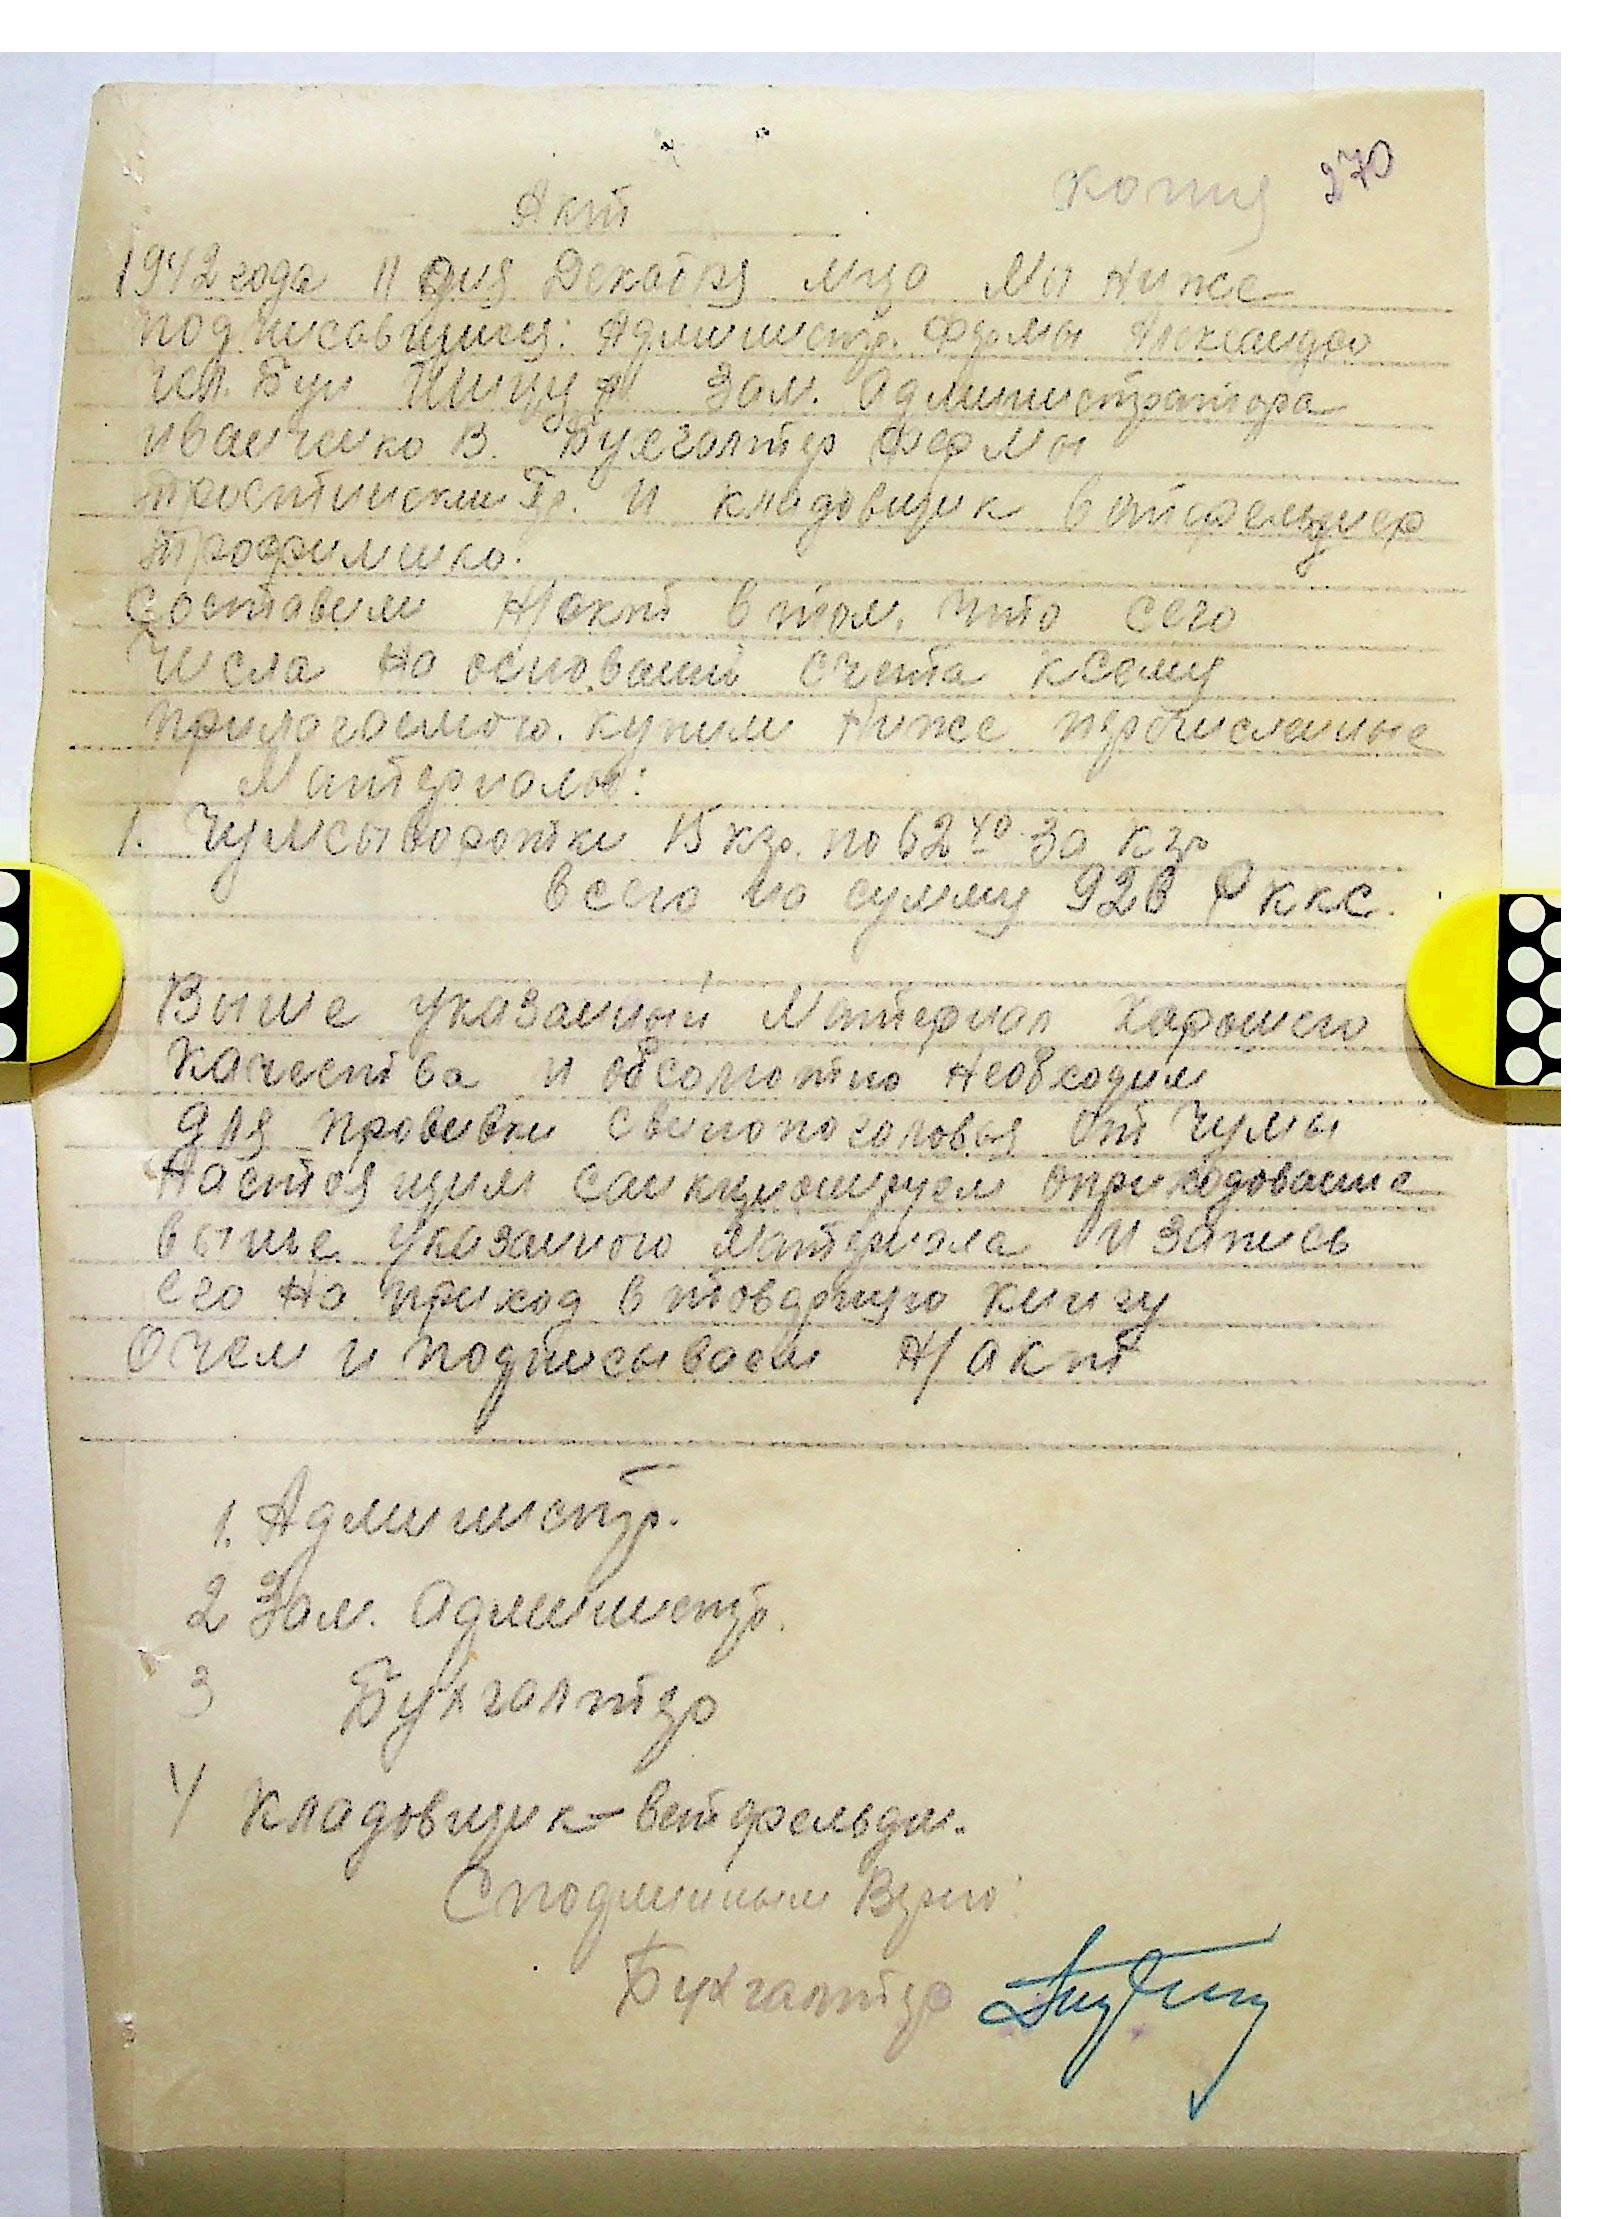 копия 270
Акт
1942 года 11 дня Декабря м-ца Мы Ниже
подписавшиеся: Администр. Фермы Александро
Зам. администратора
Иванченко В. Бухгалтер фермы
Гр. И кладовщик ветфельдшер
Трофименко.
Составили Н/акт в том, что сего
Числа на основании счета к сему
прилагаемого. купили Ниже перечисленные
Материалы:
1. Чумсыворотки 15 кгр. по 62 40 за кгр
всего на сумму 926 рккс.
Выше указанный материал хорошего
качества и обсолютно Необходим
для прививки свинопоголовья от Чумы
Настоящим санкционируем оприходование
выше указанного материала и запись
его на приход в товарную книгу
О чем и подписываем Н/акт
1. Администр.
2 Зам. администр.
3 Бухгалтер
4 Кладовщик-ветфельдш.
С подлинным Верно:
Бухгалтер